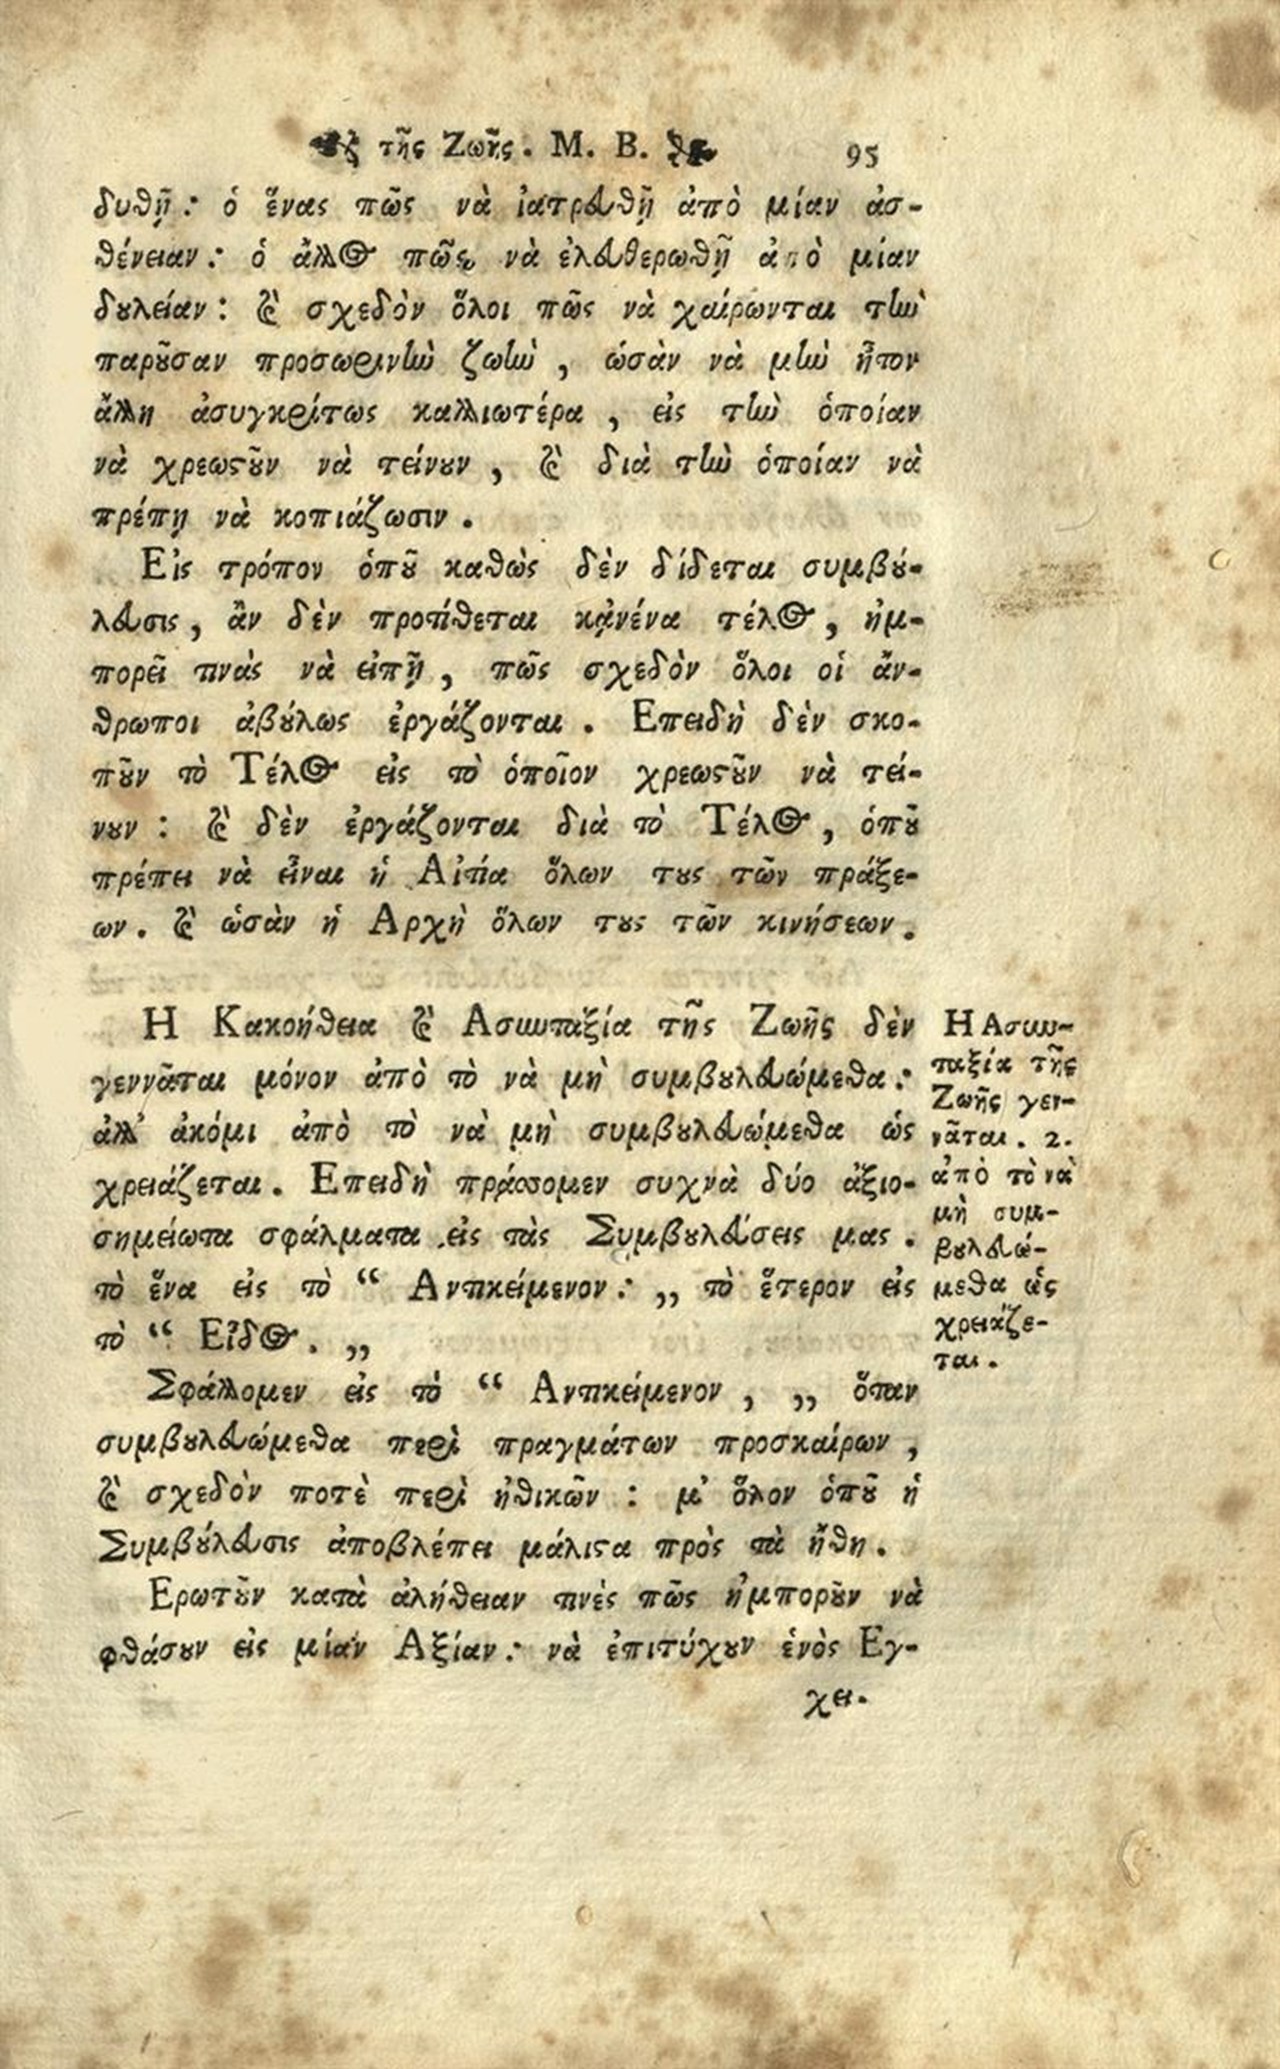 τῆς Ζωῆς. Μ. Β. 95
δυθῇ: ὁ ἕνας πῶς νὰ ἰατρευθῇ ἀπὸ μίαν ἀσ-
θένειαν: ὁ ἄλλος πῶς νὰ ἐλευθερωθῇ ἀπὸ μίαν
δουλείαν: καὶ σχεδὸν ὅλοι πῶς νὰ χαίρωνται τὴν
παροῦσαν προσωρινὴν ζωὴν, ὡσὰν νὰ μὴν ἦτον
ἄλλη ἀσυγκρίτως καλλιωτέρα, εἰς τὴν ὁποίαν
νὰ χρεωστοῦν νὰ τείνουν, καὶ διὰ τὴν ὁποίαν νὰ
πρέπῃ νὰ κοπιάζωσιν.
Εἰς τρόπον ὁποῦ καθὼς δὲν δίδεται συμβού-
λευσις, ἂν δὲν προτίθεται κᾀνένα τέλος, ἠμ-
πορεῖ τινὰς νὰ εἰπῇ, πῶς σχεδὸν ὅλοι οἱ ἄν-
θρωποι ἀβούλως ἐργάζονται. Επειδὴ δὲν σκο-
ποῦν τὸ Τέλος εἰς τὸ ὁποῖον χρεωστοῦν νὰ τεί-
νουν: καὶ δὲν ἐργάζονται διὰ τὸ Τέλος, ὁποῦ
πρέπει νὰ εἶναι ἡ Αἰτία ὅλων τους τῶν πράξε-
ων. καὶ ὡσὰν ἡ Αρχὴ ὅλων τους τῶν κινήσεων.
Η Κακοήθεια καὶ Ασυνταξία τῆς Ζωῆς δὲν
γεννᾶται μόνον ἀπὸ τὸ νὰ μὴ συμβουλευώμεθα:
ἀλλ' ἀκόμι ἀπὸ τὸ νὰ μὴ συμβουλευώμεθα ὡς
χρειάζεται. Επειδὴ πράσσομεν συχνὰ δύο ἀξιο-
σημείωτα σφάλματα εἰς τὰς Συμβουλεύσεις μας.
τὸ ἕνα εἰς τὸ “ Αντικείμενον: „ τὸ ἕτερον εἰς
τὸ “ Εἶδος. „
Σφάλλομεν εἰς τὸ “ Αντικείμενον, „ ὅταν
συμβουλευώμεθα περὶ πραγμάτων προσκαίρων,
καὶ σχεδὸν ποτὲ περὶ ἠθικῶν: μ' ὅλον ὁποῦ ἡ
Συμβούλευσις ἀποβλέπει μάλιστα πρὸς τὰ ἤθη.
Ερωτοῦν κατὰ ἀλήθειαν τινὲς πῶς ἠμποροῦν νὰ
φθάσουν εἰς μίαν Αξίαν: νὰ ἐπιτύχουν ἑνὸς Εγ-
χει.
Η Ασυν-
ταξία τῆς
Ζωῆς γεν-
νᾶται. 2.
ἀπὸ τὸ νὰ
μὴ συμ-
βουλευώ-
μεθα ὡς
χρειάζε-
ται.